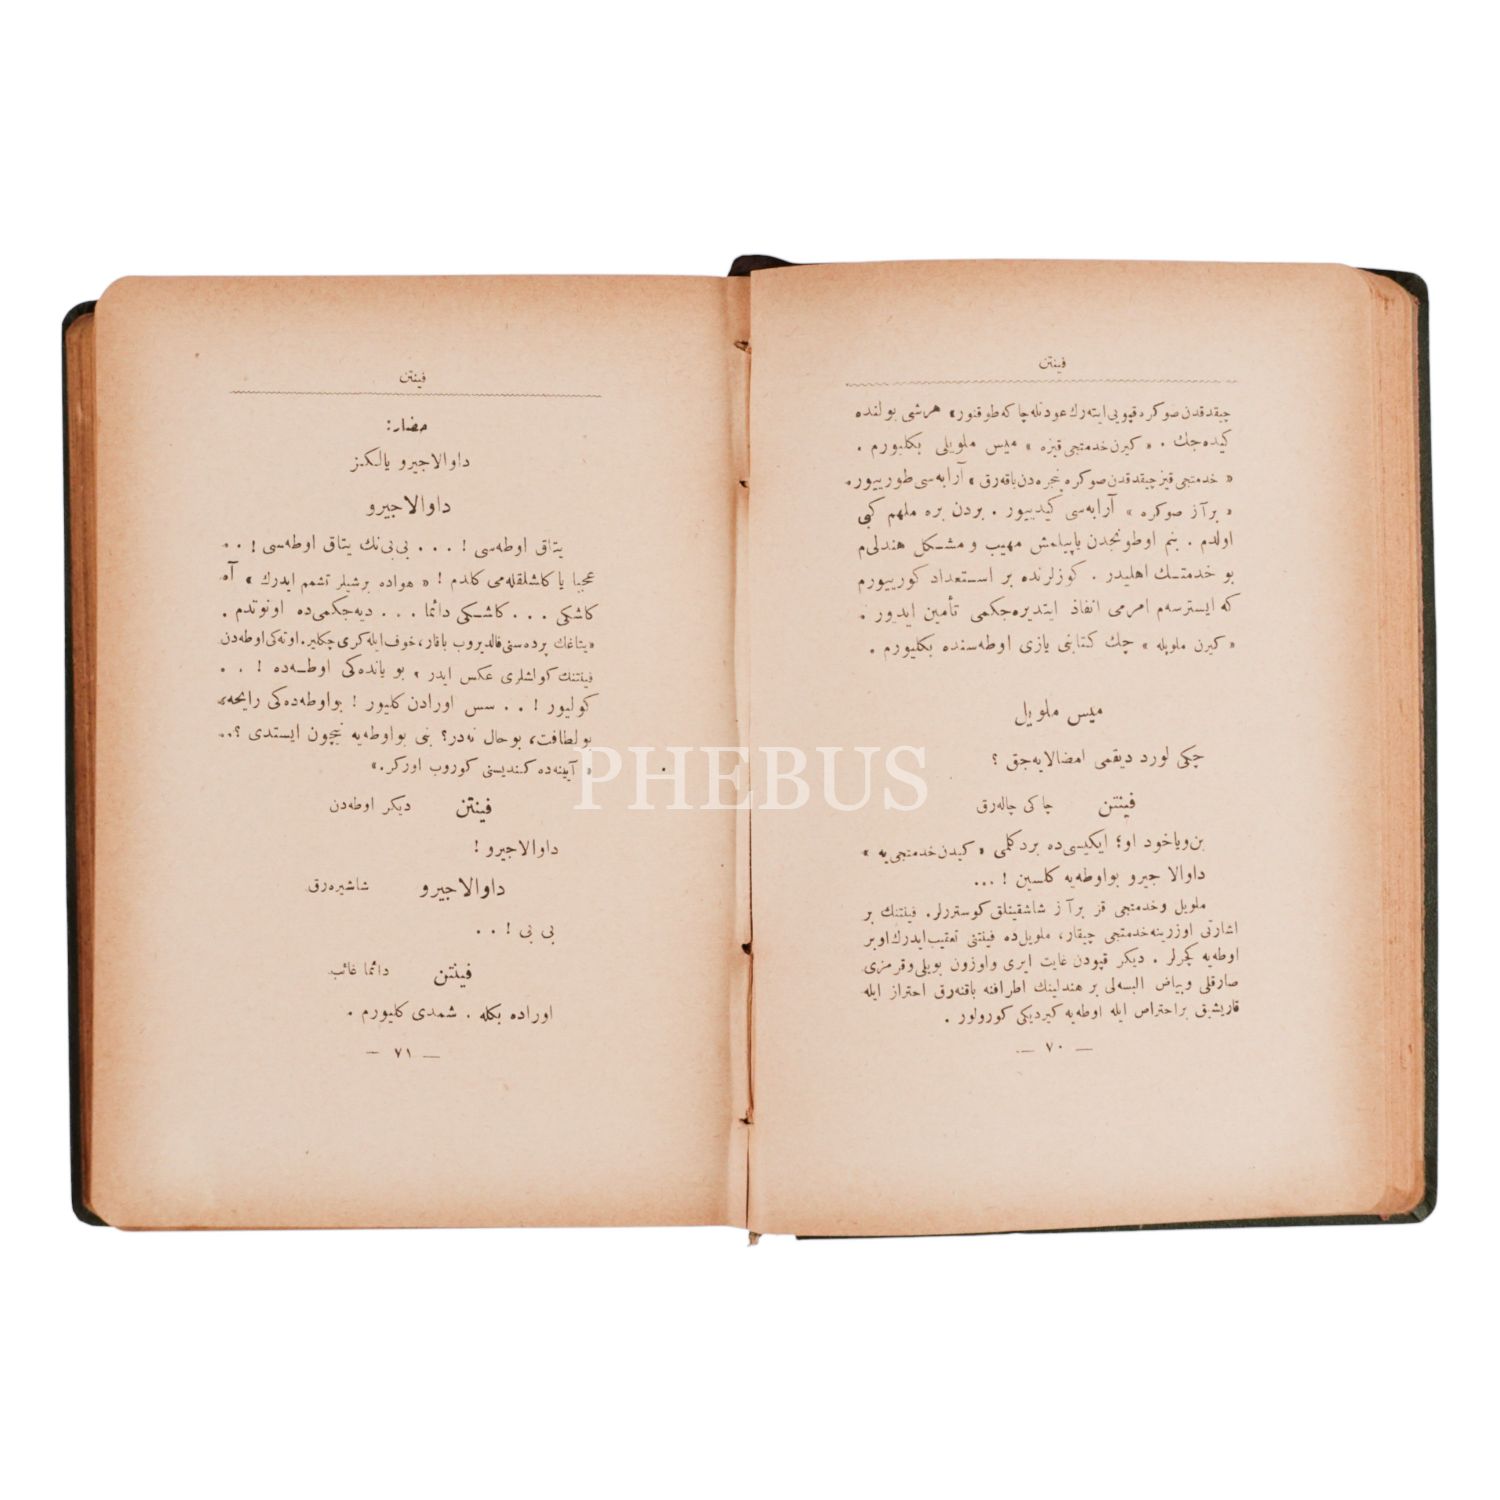 فینتن
چیقدقدن صوكره قپویی ایته‌رك عودتله چاكه طوقنور» هرشی بولنده
كیده‌جك . «كیرن خدمتجی قیزه» میس ملویلی بكلیورم .
«خدمتجی قیز چیقدقدن صوكره پنجره‌دن باقه‌رق» آرابه‌سی طورییور.
«بر آز صوكره» آرابه‌سی كیدییور . بردن بره ملهم كبی
اولدم . بنم اوطونجدن یاپیلمش مهیب و مشكل هندلی‌م
بو خدمتك اهلیدر . كوزلرنده بر استعداد كورییورم
كه ایسترسه‌م امرمی انفاذ ایتدیره‌جكمی تأمین ایدیور .
«كیرن ملویله» چك كتابنی یازی اوطه‌سنده بكلیورم .
میس ملویل
چكی لورد دیقمی امضالایه‌جق ؟
فینتن چاكی چاله‌رق
بن ویاخود او؛ ایكیسی‌ده بردكلمی «كیدن خدمتجی‌یه»
داوالاجیرو بو اوطه‌یه كلسین ! ...
ملویل وخدمتجی قز بر آز شاشقینلق كوستررلر. فینتنك بر
اشارتی اوزرینه خدمتجی چیقار، ملویل‌ده فینتنی تعقیب ایدرك اوبر
اوطه‌یه كچرلر . دیكر قپودن غایت ایری واوزون بویلی وقرمزی
صارقلی وبیاض البسه‌لی بر هندلینك اطرافنه باقنه‌رق احتراز ایله
قاریشیق بر احتراص ایله اوطه‌یه كیردیكی كورولور .
— ٧٠ —
فینتن
حضار:
داوالاجیرو یالكز
داوالاجیرو
یتاق اوطه‌سی ! . . . بی بی‌نك یتاق اوطه‌سی ! ..
عجبا یا كاشلقله‌می كلدم ! «هواده برشیلر تشمم ایدرك» آه
كاشكی . . . كاشكی دائما . . . دیه‌جكمی‌ده اونوتدم .
«یتاغك پرده‌سنی قالدیروب باقار، خوف ایله كری چكلیر. اوته‌كی اوطه‌دن
فینتنك كولشلری عكس ایدر» بو یانده‌كی اوطه‌ده ! . .
كولیور ! . . سس اورادن كلیور ! بو اوطه‌ده‌كی رایحه،
بو لطافت، بو حال نه‌در؟ بنی بو اوطه‌یه نیچون ایستدی ؟..
«آیینه‌ده كندیسنی كوروب اوركر.»
فینتن دیكر اوطه‌دن
داوالاجیرو !
داوالاجیرو شاشیره‌رق
بی بی ! . .
فینتن دائما غائب
اوراده بكله . شمدی كلیورم .
— ٧١ —
PHEBUS